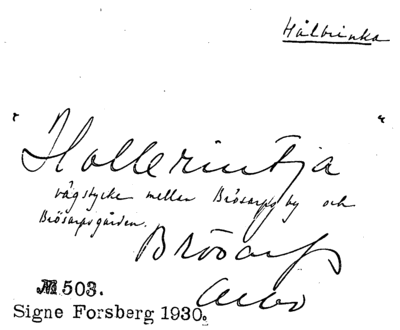 Hålbrinka
"Hollerintja"
vägstycke mellan Brösarps by och
Brösarpsgården.
Brösarp
Albo
№ 503.
Signe Forsberg 1930.